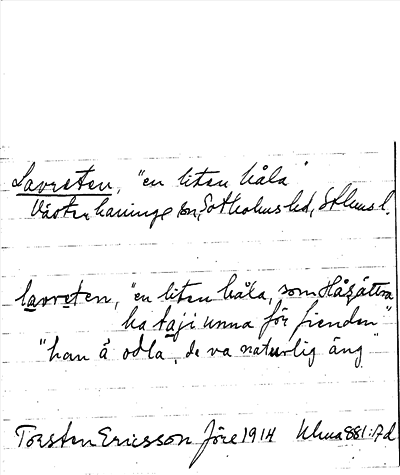 Lavreten, "en liten kåla"
Västerhaninge sn, Sotholms hd, Sthms l.
lavreten, "en liten kåla, som Håsättra
ha taji unna för fienden"
"han å odla, de va naturlig äng"
Torsten Ericsson före 1914 881:17d